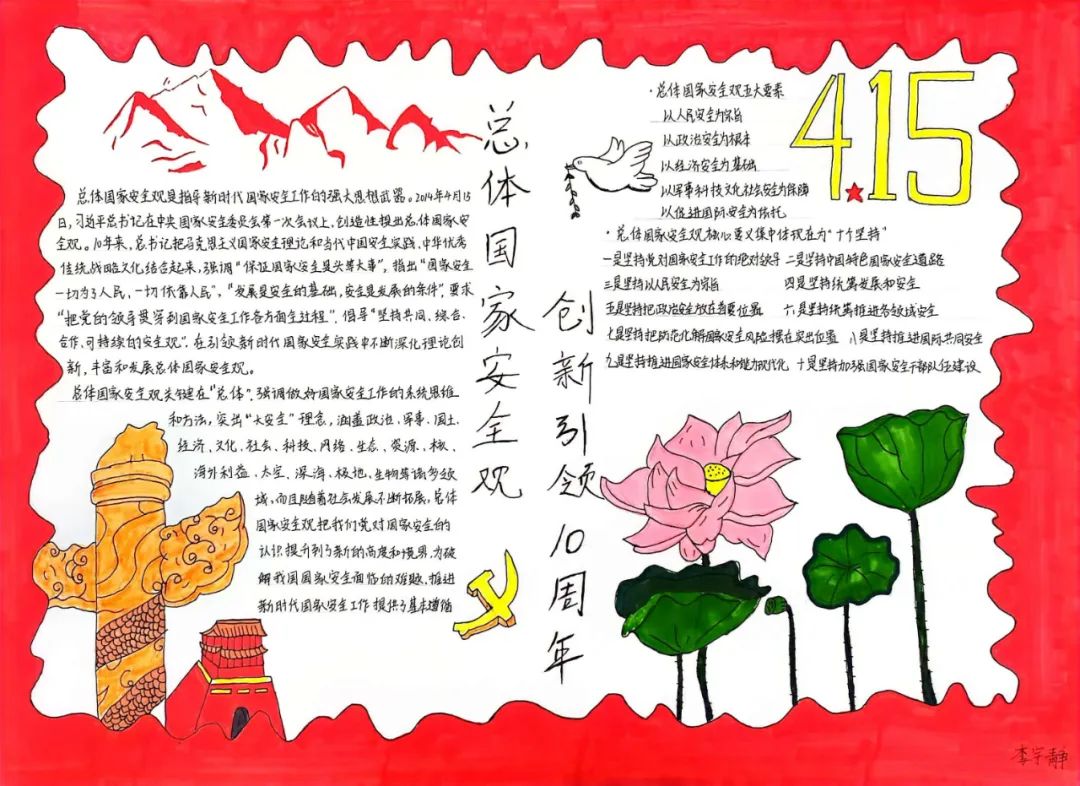 总体国家安全观
创新引领10周年
总体国家安全观是指导新时代国家安全工作的强大思想武器。2014年4月15
日,习近平总书记在中央国家安全委员会第一次会议上,创造性提出总体国家安
全观。10年来,总书记把马克思主义国家安全理论和当代中国安全实践,中华优秀
传统战略文化结合起来,强调“保证国家安全是头等大事”,指出“国家安全
一切为了人民,一切依靠人民”,“发展是安全的基础,安全是发展的条件”,要求
“把党的领导贯穿到国家安全工作各方面全过程”,倡导“坚持共同、综合、
合作、可持续的安全观”,在引领新时代国家安全实践中不断深化理论创
新,丰富和发展总体国家安全观。
总体国家安全观关键在“总体”,强调做好国家安全工作的系统思维
和方法,突出“大安全”理念,涵盖政治、军事、国土、
经济、文化、社会、科技、网络、生态、资源、核、
海外利益、太空、深海、极地、生物等诸多领
域,而且随着社会发展不断拓展,总体
国家安全观把我们党对国家安全的
认识提升到了新的高度和境界,为破
解我国国家安全面临的难题,推进
新时代国家安全工作提供了基本遵循
4.15
·总体国家安全观五大要素
以人民安全为宗旨
以政治安全为根本
以经济安全为基础
以军事科技文化社会安全为保障
以促进国际安全为依托
·总体国家安全观核心要义集中体现在为“十个坚持”
一是坚持党对国家安全工作的绝对领导 二是坚持中国特色国家安全道路
三是坚持以人民安全为宗旨 四是坚持统筹发展和安全
五是坚持把政治安全放在首要位置 六是坚持统筹推进各领域安全
七是坚持把防范化解国家安全风险摆在突出位置 八是坚持推进国际共同安全
九是坚持推进国家安全体系和能力现代化 十是坚持加强国家安全干部队伍建设
李宇静